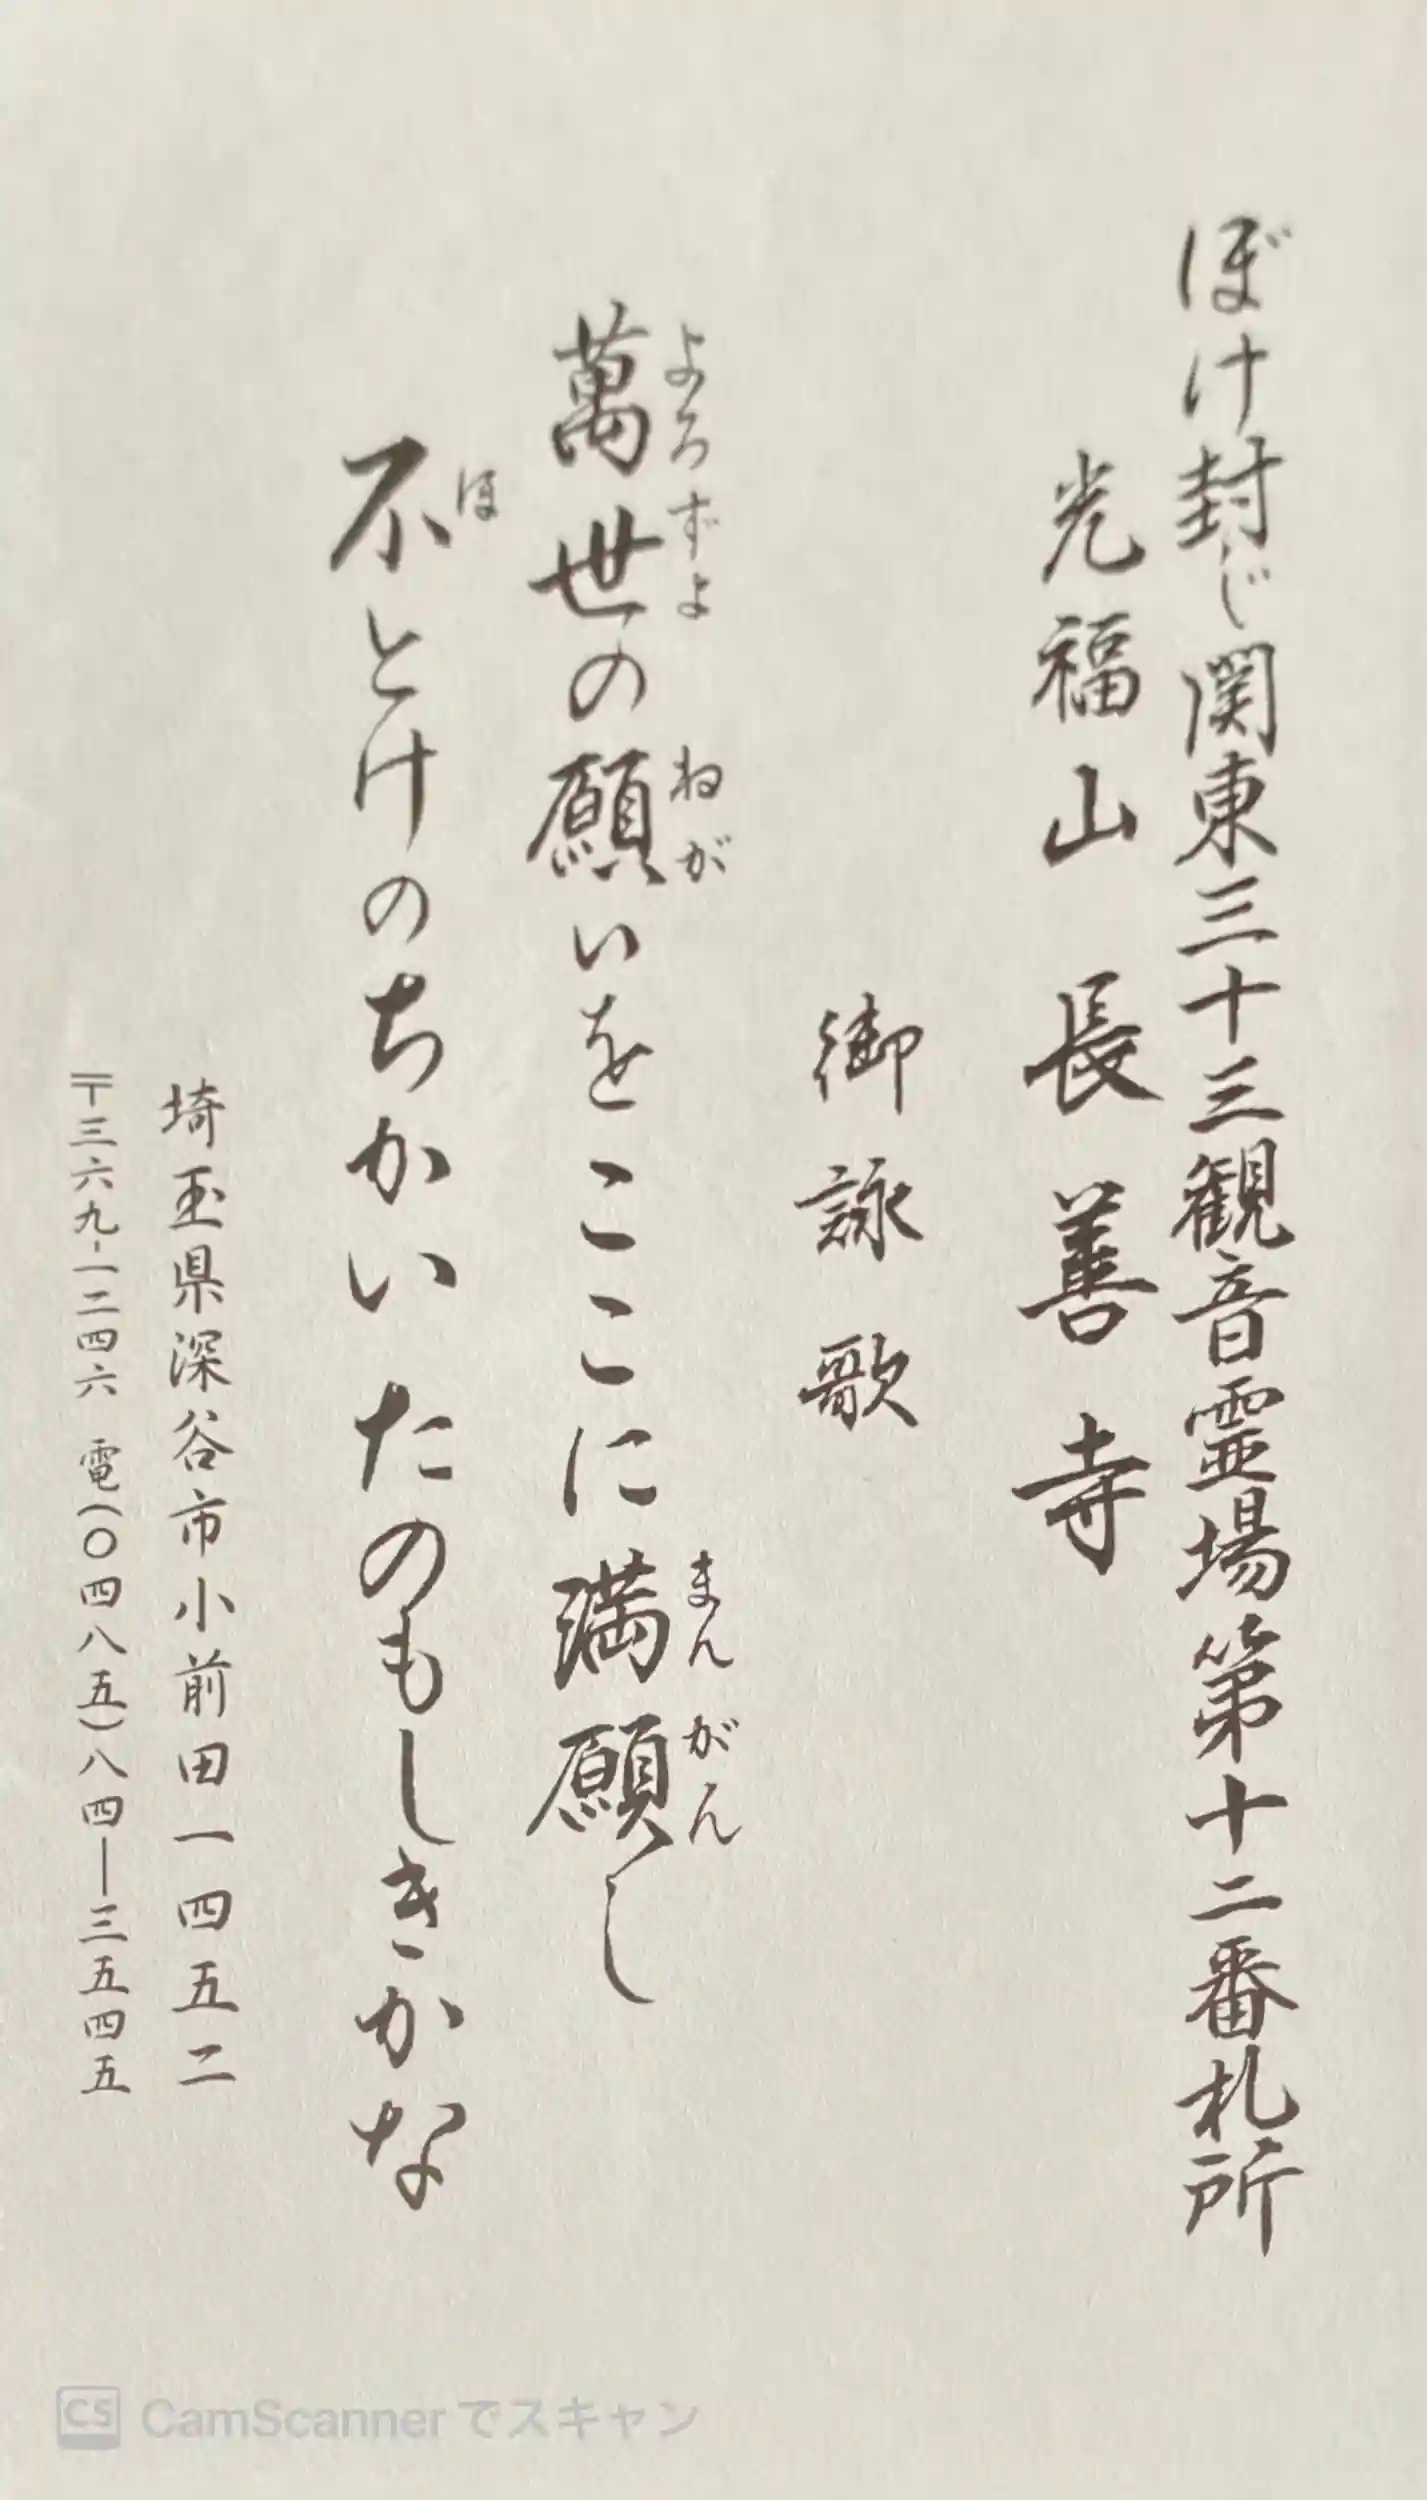 ぼけ封じ関東三十三観音霊場第十二番札所
光福山 長善寺
御詠歌
萬世の願いをここに満願し
よろずよ ねが まんがん
不とけのちかいたのもしきかな
ほ
埼玉県深谷市小前田一四五二
〒三六九-一二四六 電(〇四八五)八四―三五四五
CS CamScannerでスキャン